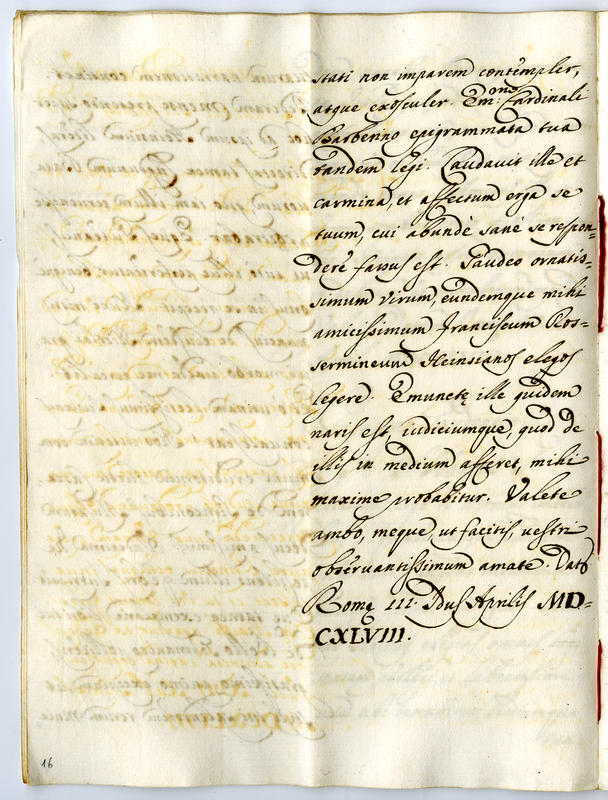 stati non imparem contempler,
atque exosculer. Em:mo Cardinali
Barberino epigrammata tua
tandem legi. Laudavit ille et
carmina, et affectum erga se
tuum, cui abundè sanè se respon-
derè fassus est. Gaudeo ornatis-
simum virum, eundemque mihi
amicissimum Franciscum Ros-
sermineum Heinsianos elegos
legere. Emunctę ille quidem
naris est, iudiciumque, quod de
illis in medium afferet, mihi
maxime probabitur. Valete
ambo, meque, ut facitis, vestri
observantissimum amate. Dat
Romę III. Idus Aprilis MD-
CXLVIII.
16